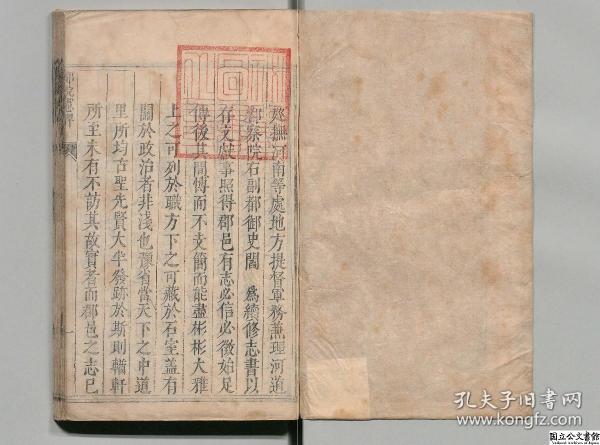 巡撫河南等處地方提督軍務兼理河道
都察院右副都御史閻 爲續修志書以
存文獻事照得郡邑有志必信必徵始足
傳後其間博而不支簡而能盡彬彬大雅
上之可列於職方下之可藏於石室蓋有
關於政治者非淺也豫省當天下之中道
里所均古聖先賢大半發跡於斯則輶軒
所至未有不訪其故實者而郡邑之志已
一
孔夫子旧书网
www.kongfz.com
国立公文書館
National Archives of Japan